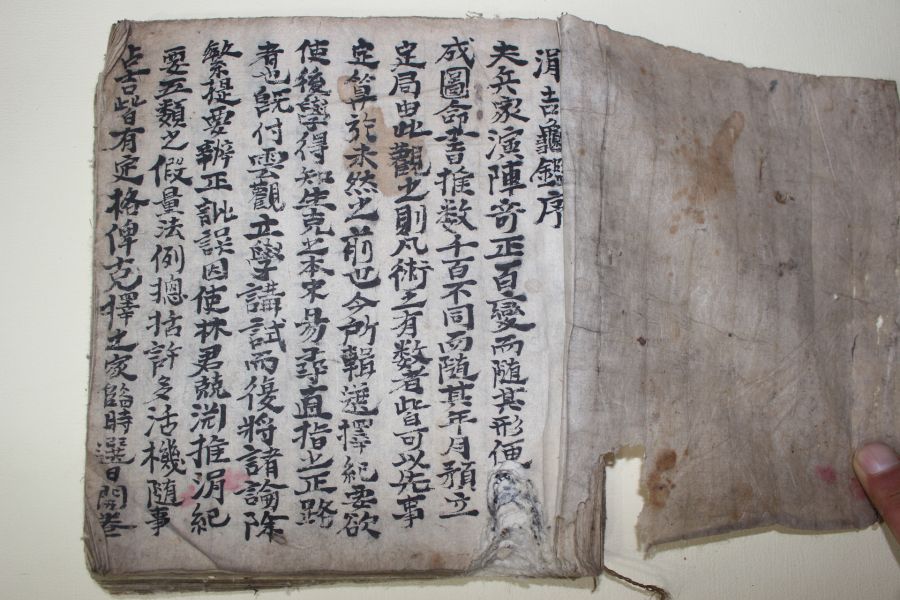 涓吉龜鑑序
夫兵家演陣奇正百變而隨其形便
成圖命書推数千百不同而隨其年月預立
定局由此觀之則凡術之有数者皆可以先事
定算於未然之前也今所輯選擇紀要欲
使後學得知生克之本末易尋直指之正路
者也旣付雲觀立學講試而復將諸論除
繁提要辨正訛誤因使林君競渊推涓紀
要五類之假量法例摠括許多活機隨事
占吉皆有定格俾克擇之家臨時選日開卷